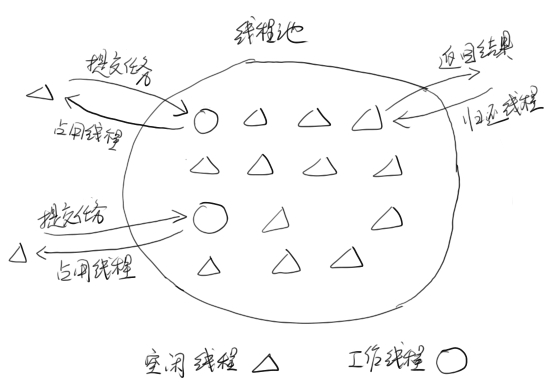 线程池
提交任务
占用线程
返回结果
归还线程
提交任务
占用线程
空闲线程
工作线程